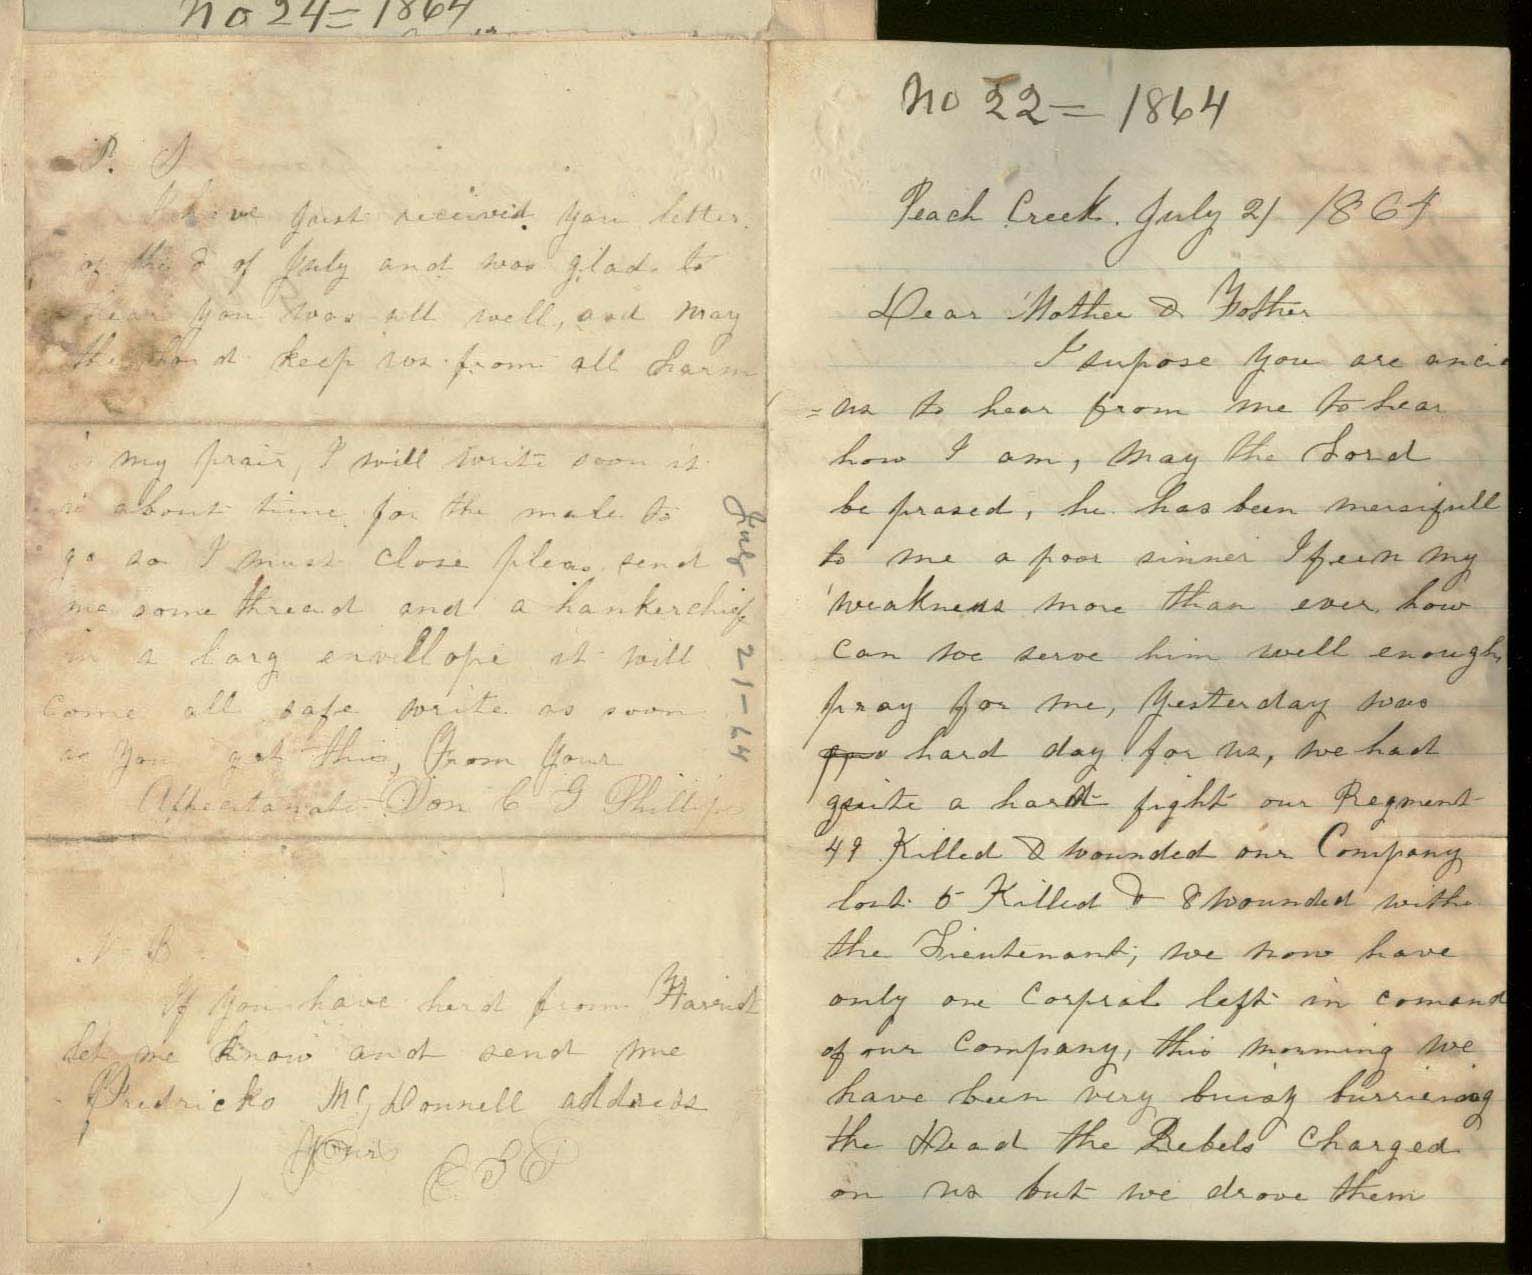 No 24 = 1864
P. S
I have just received you letter
of the 2 of July and was glad to
hear you was all well, and may
the Lord keep us from all harm
is my prair, I will write soon it
is about time for the male to
go so I must close pleas send
me some thread and a hankerchief
in a larg envellope it will
come all safe write as soon
as you get this, From Your
Affectanate Son C G Phillips
N B
If you have herd from Harriet
let me know and send me
Fredricks McDonnell address
Yours
C G P
July 21-64
No 22 = 1864
Peach Creek. July 21 1864
Dear Mother & Father
I supose you are ancio
=us to hear from me to hear
how I am, may the Lord
be prased, he has been mersifull
to me a poor sinner I feen my
weakness more than ever how
can we serve him well enough
pray for me, Yesterday was
hard day for us, we had
quite a hard fight our Regment
49 Killed & wounded our Company
lost 5 Killed & 8 wounded withe
the Lieutenant, we now have
only one Corpral left in comand
of our Company, this morning we
have been very buisy burriening
the Dead the Rebels Charged
on us but we drove them